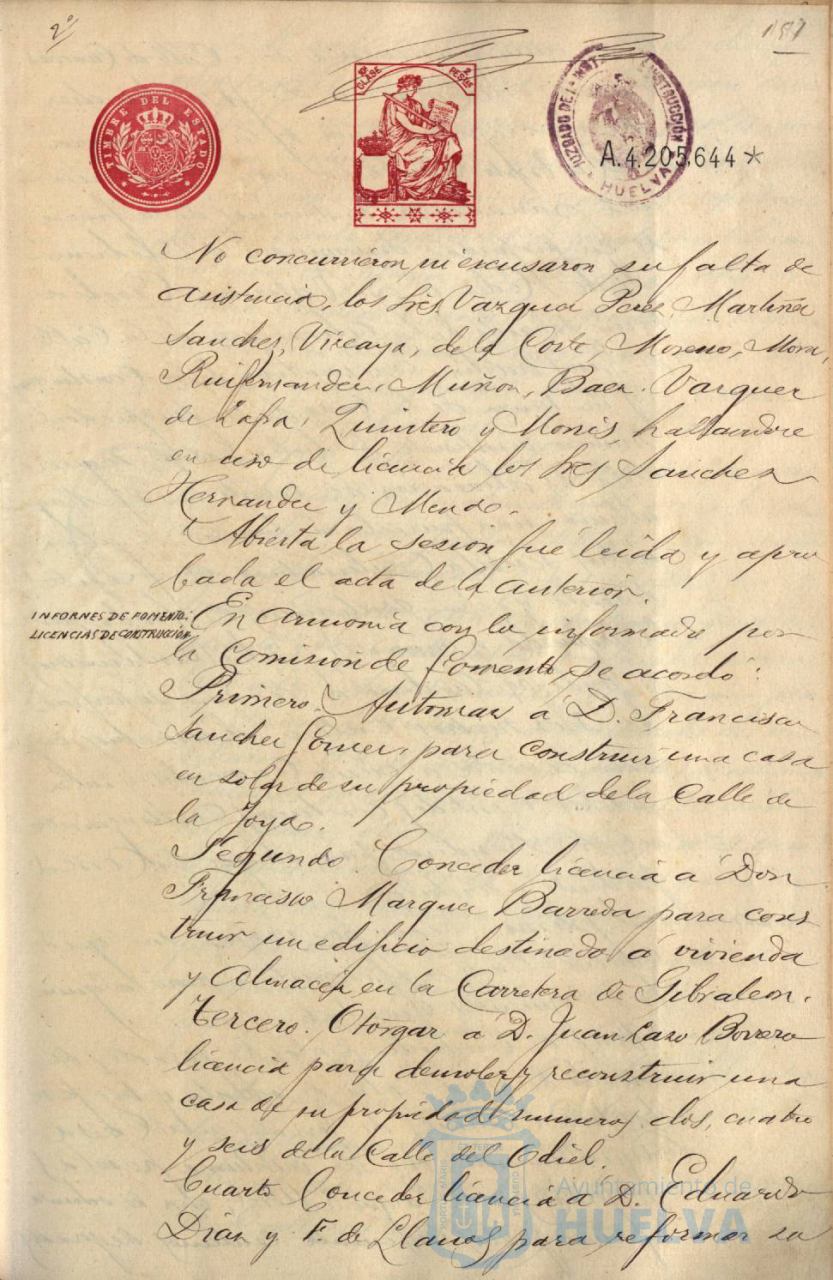 2º
187
TIMBRE DEL ESTADO
10ª CLASE
2 PESETAS
JUZGADO DE 1ª INST INSTRUCCIÓN
HUELVA
A.4.205,644*
No concurrieron, ni escusaron su falta de
asistencia, los Sres. Vazquez Perez, Martinez
Sanchez, Vizcaya, de la Corte, Moreno, Mora,
Ruifernandez, Muñoz, Baez, Vazquez
de Zafra, Quintero y Monis, hallandose
en uso de licencia los Sres Sanchez
Hernandez y Mendo.
Abierta la sesion fué leida y apro
bada el acta de la anterior.
INFORMES DE FOMENTO.
LICENCIAS DE CONSTRUCCIÓN
En armonia con lo informado por
la Comisión de Fomento se acordó:
Primero. Autorizar á D. Francisco
Sanchez Gomez, para construir una casa
en solar de su propiedad de la Calle de
la Joya.
Segundo. Conceder licencia á Don
Francisco Marquez Barreda para cons
truir un edificio destinado á vivienda
y almacén en la Carretera de Gibraleon.
Tercero. Otorgar á D. Juan Cazo Borrero
licencia para demoler y reconstruir una
casa de su propiedad numeros dos, cuatro
y seis de la Calle del Odiel.
Cuarto Conceder licencia á D. Eduardo
Diaz y F. de Llanos para reformar su
Ayuntamiento de
HUELVA